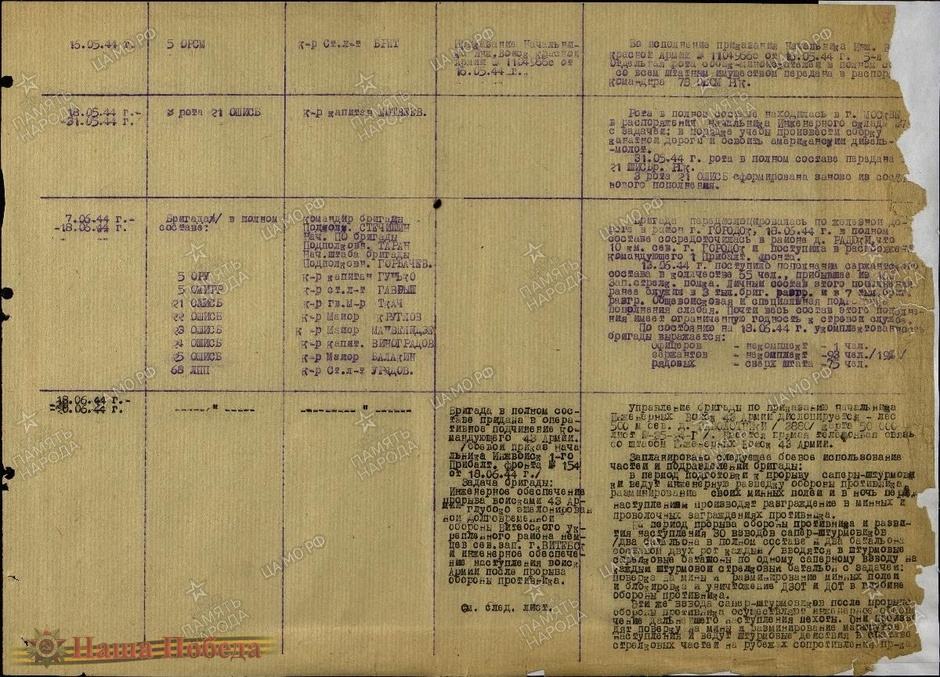 16.05.44 г.
5 ОРСМ
к-р Ст.л-т БРИТ
Приказание Начальни-
ка Инж.Войск Красной
Армии № 1104566с от
16.05.44 г.
Во исполнение приказания Начальника Инж. В
Красной Армии № 1104566с от 16.05.44 г. 5-я
Отдельная рота в полном
со всем штатным имуществом передана в распор
командира 78
18.05.44 г.-
-31.05.44 г.
3 рота 21 ОШИСБ
к-р капитан МАТВЕЕВ.
Рота в полном составе находилась в г. МОСКВЕ
в распоряжении начальника Инженерного
с задачей: в порядке учебы произвести сборку
канатной дороги и освоить американский дизель-
-молот.
31.05.44 г. рота в полном составе передана
21 ОШИСБр. РГК.
3 рота 21 ОШИСБ сформирована заново из
нового пополнения.
7.06.44 г.-
-18.06.44 г.
Бригада в полном
составе:
Командир бригады
Подполк. СТЕЧИШИН
Нач. ПО бригады
Подполковн. ТАРАН
Нач.штаба бригады
Подполковн. ГОРБАЧЕВ.
5 ОРУ
к-р капитан ГУЛЬКО
к-р ст.л-т ГАВРЫШ
21 ОШИСБ
к-р гв.м-р ТКАЧ
22 ОШИСБ
к-р Майор КРУГЛОВ
23 ОШИСБ
к-р Майор
24 ОШИСБ
к-р капит. ВИНОГРАДОВ
25 ОШИСБ
к-р Майор БАЛАКИН
68 ЛПП
к-р Ст.л-т УРЯДОВ.
Бригада передислоцировалась по железной до-
роге в район г. ГОРОДОК, 18.06.44 г. в полном
составе сосредоточилась в районе д. что
10 км. сев. г. ГОРОДОК и поступила в распоряжен
командующего 1 Прибалт. фронта.
13.06.44 г. поступило пополнение сержантского
состава в количестве 55 чел. прибывшее из
Зап.стрелк. полка. Личный состав этого пополнения
ранее служил в
разгр. Общевойсковая и специальная подготовка
пополнения слабая. Почти весь состав этого пополне-
ния имеет ограниченную годность к строевой службе
По состоянию на 18.06.44 г. укомплектованность
бригады выражается:
офицеров - некомплект - 1 чел.
сержантов - некомплект -93 чел.
рядовых - сверх штата -75 чел.
18.06.44 г.-
06.44 г.
------"------
---------"--------
Бригада в полном сос-
таве придана в опера-
тивное подчинение ко-
мандующего 43 Армии.
/боевой приказ нача-
льника Инжвойск 1-го
Прибалт. фронта № 154
от 18.06.44 г./
Задача бригады:
Инженерное обеспечение
прорыва войсками 43 Ар-
мии глубоко эшелонирован
ной долговременной
обороны Витебского ук-
репленного района нем-
цев сев.зап. г. ВИТЕБСК
и инженерное обеспече-
ние наступления войск
Армии после прорыва
обороны противника.
см. след. лист.
Управление бригады по приказанию начальника
Инженерных войск 43 Армии дислоцируется - лес
500 м сев. д. /2880/ карта 50 000
Имеется прямая телефонная связь
со штабом Инженерных Войск 43 Армии.
Запланировано следующее боевое использование
частей и подразделений бригады:
в период подготовки к прорыву саперы-штурмови-
ки ведут инженерную разведку обороны противника,
разминирование своих минных полей и в ночь перед
наступлением производят разграждение в минных и
проволочных заграждениях противника.
В период прорыва обороны противника и разви-
тия наступления 30 взводов сапер-штурмовиков
/два батальона в полном составе и два батальона
составом двух рот каждый/ вводятся в штурмовые
стрелковые батальоны по одному саперному взводу на
каждый штурмовой стрелковый батальон с задачей:
поверка на мины и разминирование минных полей
и блокировка и уничтожение ДЗОТ и ДОТ в глубине
обороны противника.
Эти же взвода сапер-штурмовиков после прорыва
обороны противника осуществляют инженерное обеспе-
чение дальнейшего наступления пехоты. Они произво-
дят поверку на мины и разминирование маршрутов
наступления и ведут штурмовые действия в составе
стрелковых частей на рубежах сопротивления
Наша Победа
ПАМЯТЬ НАРОДА
ЦАМО РФ